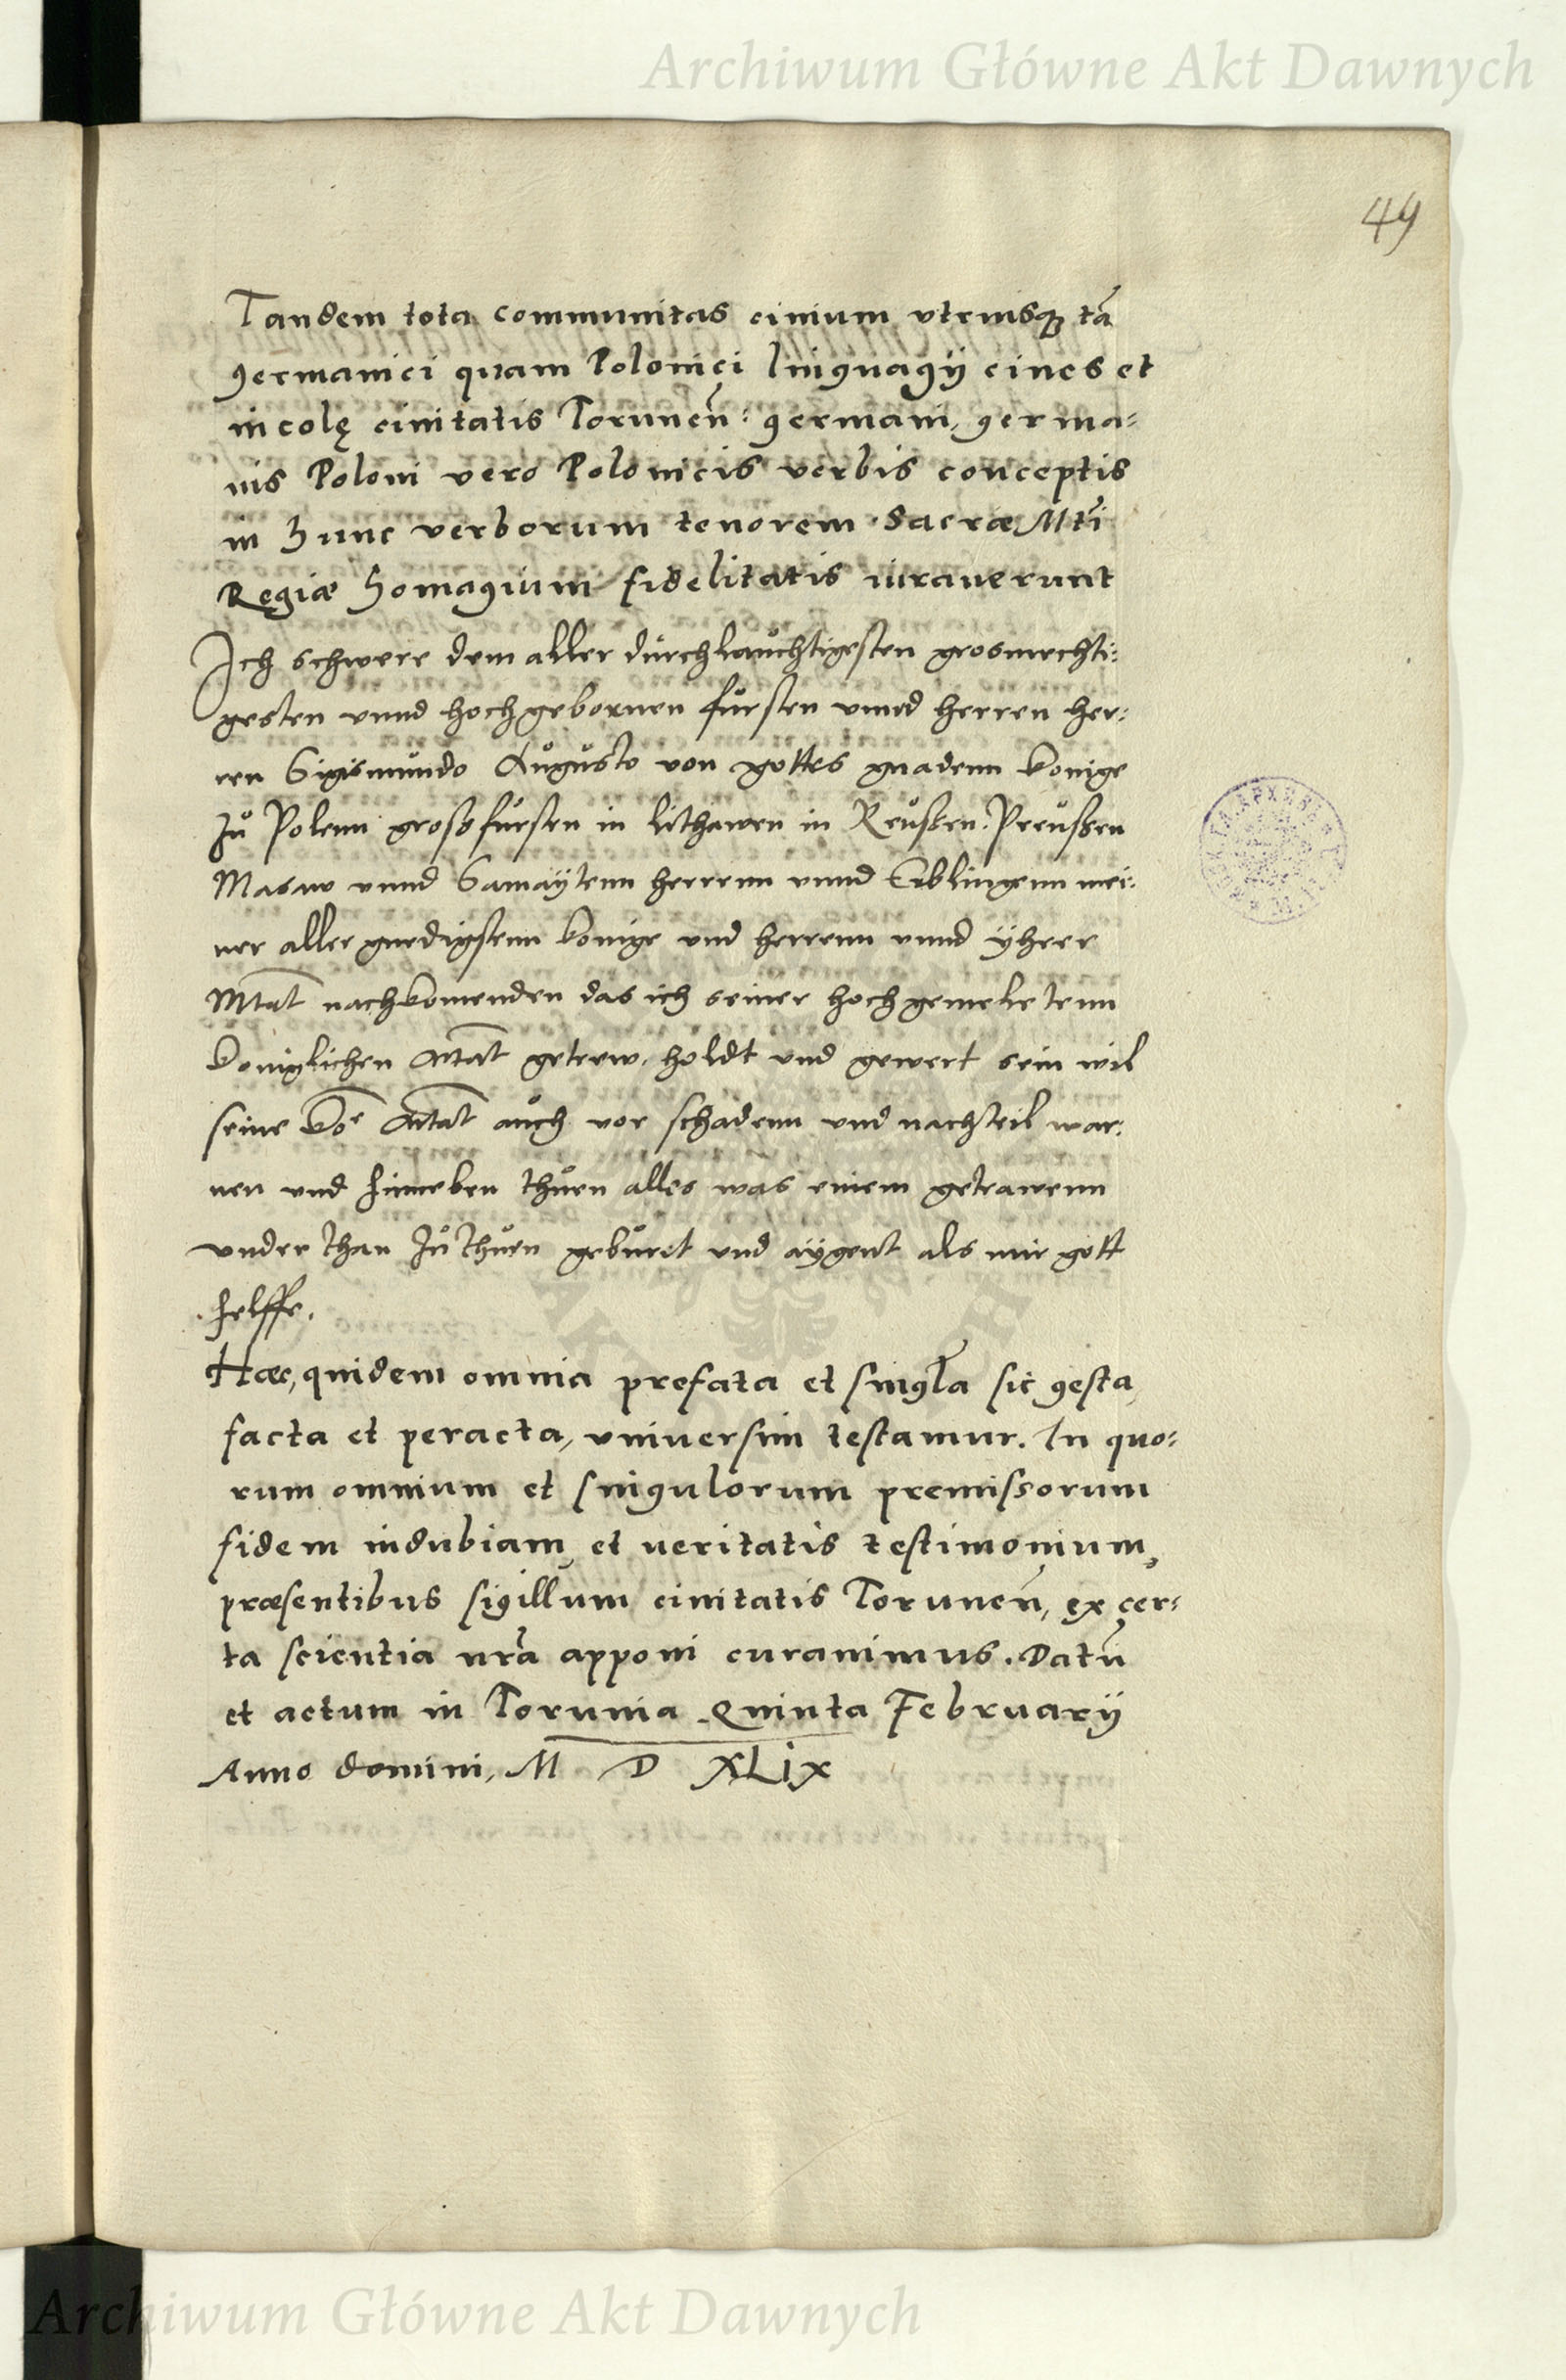 Archiwum Główne Akt Dawnych
49
Tandem tota communitas ciuium vtriusq₃ tã
germanici quam Polonici linguagij ciues et
incolę ciuitatis Torunen̄: germani, germa-
nis Poloni vero Polonicis verbis conceptis
in hunc verborum tenorem Sacræ Mti
Regiæ homagium fidelitatis iurauerunt
Ich schwere dem aller durchlauchtigesten grosmechti-
gesten vnnd hochgebornen fursten vnnd herren her-
ren Sigismundo Augusto von gottes gnadenn konige
zu Polenn grossfursten in lithawen in Reussen Preussen
Masaw vnnd Samaÿtenn herrenn vnnd Erblingenn mei-
ner aller gnedigstenn konige vnd herrenn vnnd ÿhrer
Mtat nachkomenden das ich seiner hochgemeltetenn
koniglichen Mtat getrew, holdt vnd gewert sein wil
seine koe Mtat auch vor schadenn vnd nachteil war-
nen vnd hinneben thuen alles was einem getrawenn
vnderthan zu thuen geburet vnd aÿgent als mir gott
helffe.
Hæc, quidem omnia prefata et singl̃a sic gesta,
facta et peracta, vniuersim testamur. In quo-
rum omnium et singulorum premissorum
fidem indubiam, et ueritatis testimonium,
præsentibus sigillum ciuitatis Torunen̄, ex cer-
ta scientia nr̃a apponi curauimus. Datũ
et actum in Torunia Quinta Februarij
Anno domini, M D XLIX
Archiwum Główne Akt Dawnych